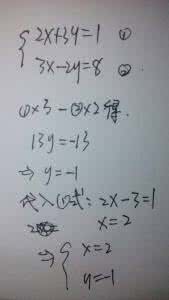 2x+3y=1 ①
3x-2y=8 ②
①×3-②×2得.
13y=-13
⇒ y=-1
代入①式:2x-3=1
x=2
⇒ { x=2
y=-1